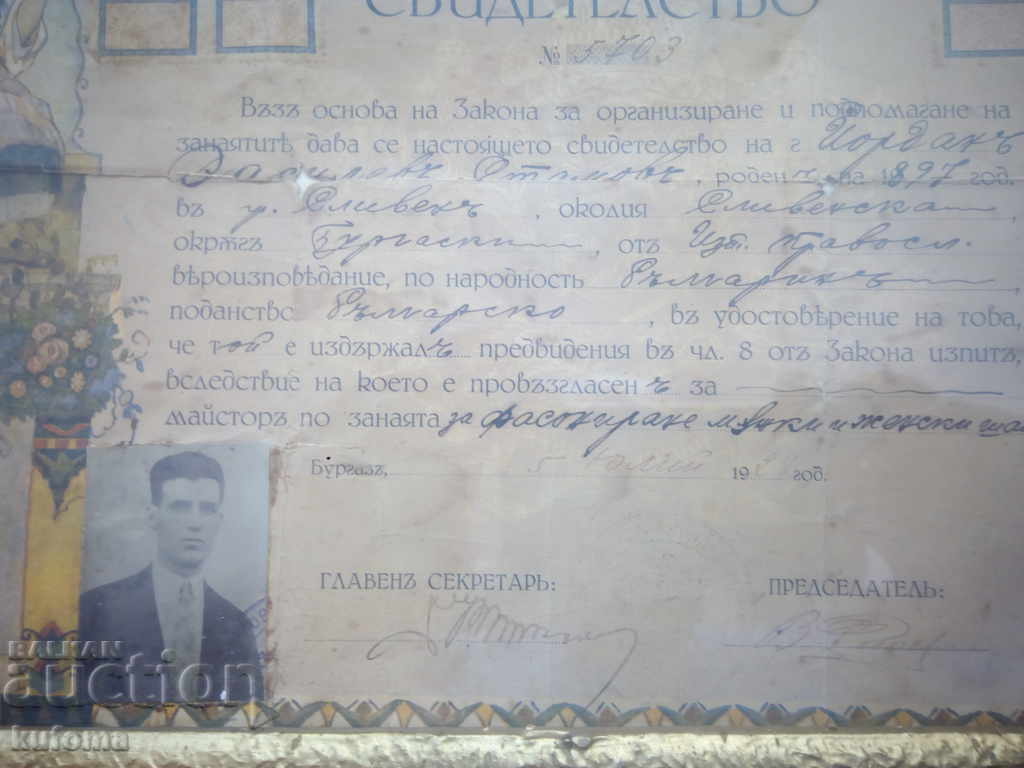 СВИДЕТЕЛСТВО
№ 5703
Възъ основа на Закона за организиране и подпомагане на
занаятитѣ дава се настоящето свидетелство на г Йорданъ
Василевъ, роденъ на 1897 год.
въ г. Сливенъ, околия Сливенска,
окрѫгъ Бургаски, отъ Изт. правосл.
вѣроизповѣдание, по народность българинъ,
поданство българско, въ удостовѣрение на това,
че той е издържалъ предвидения въ чл. 8 отъ Закона изпитъ,
вследствие на което е провъзгласенъ за
майсторъ по занаята за фасониране мѫжки и женски
Бургазъ, 5 19 год.
ГЛАВЕНЪ СЕКРЕТАРЬ: ПРЕДСЕДАТЕЛЬ:
BALKAN
auction
kufoma